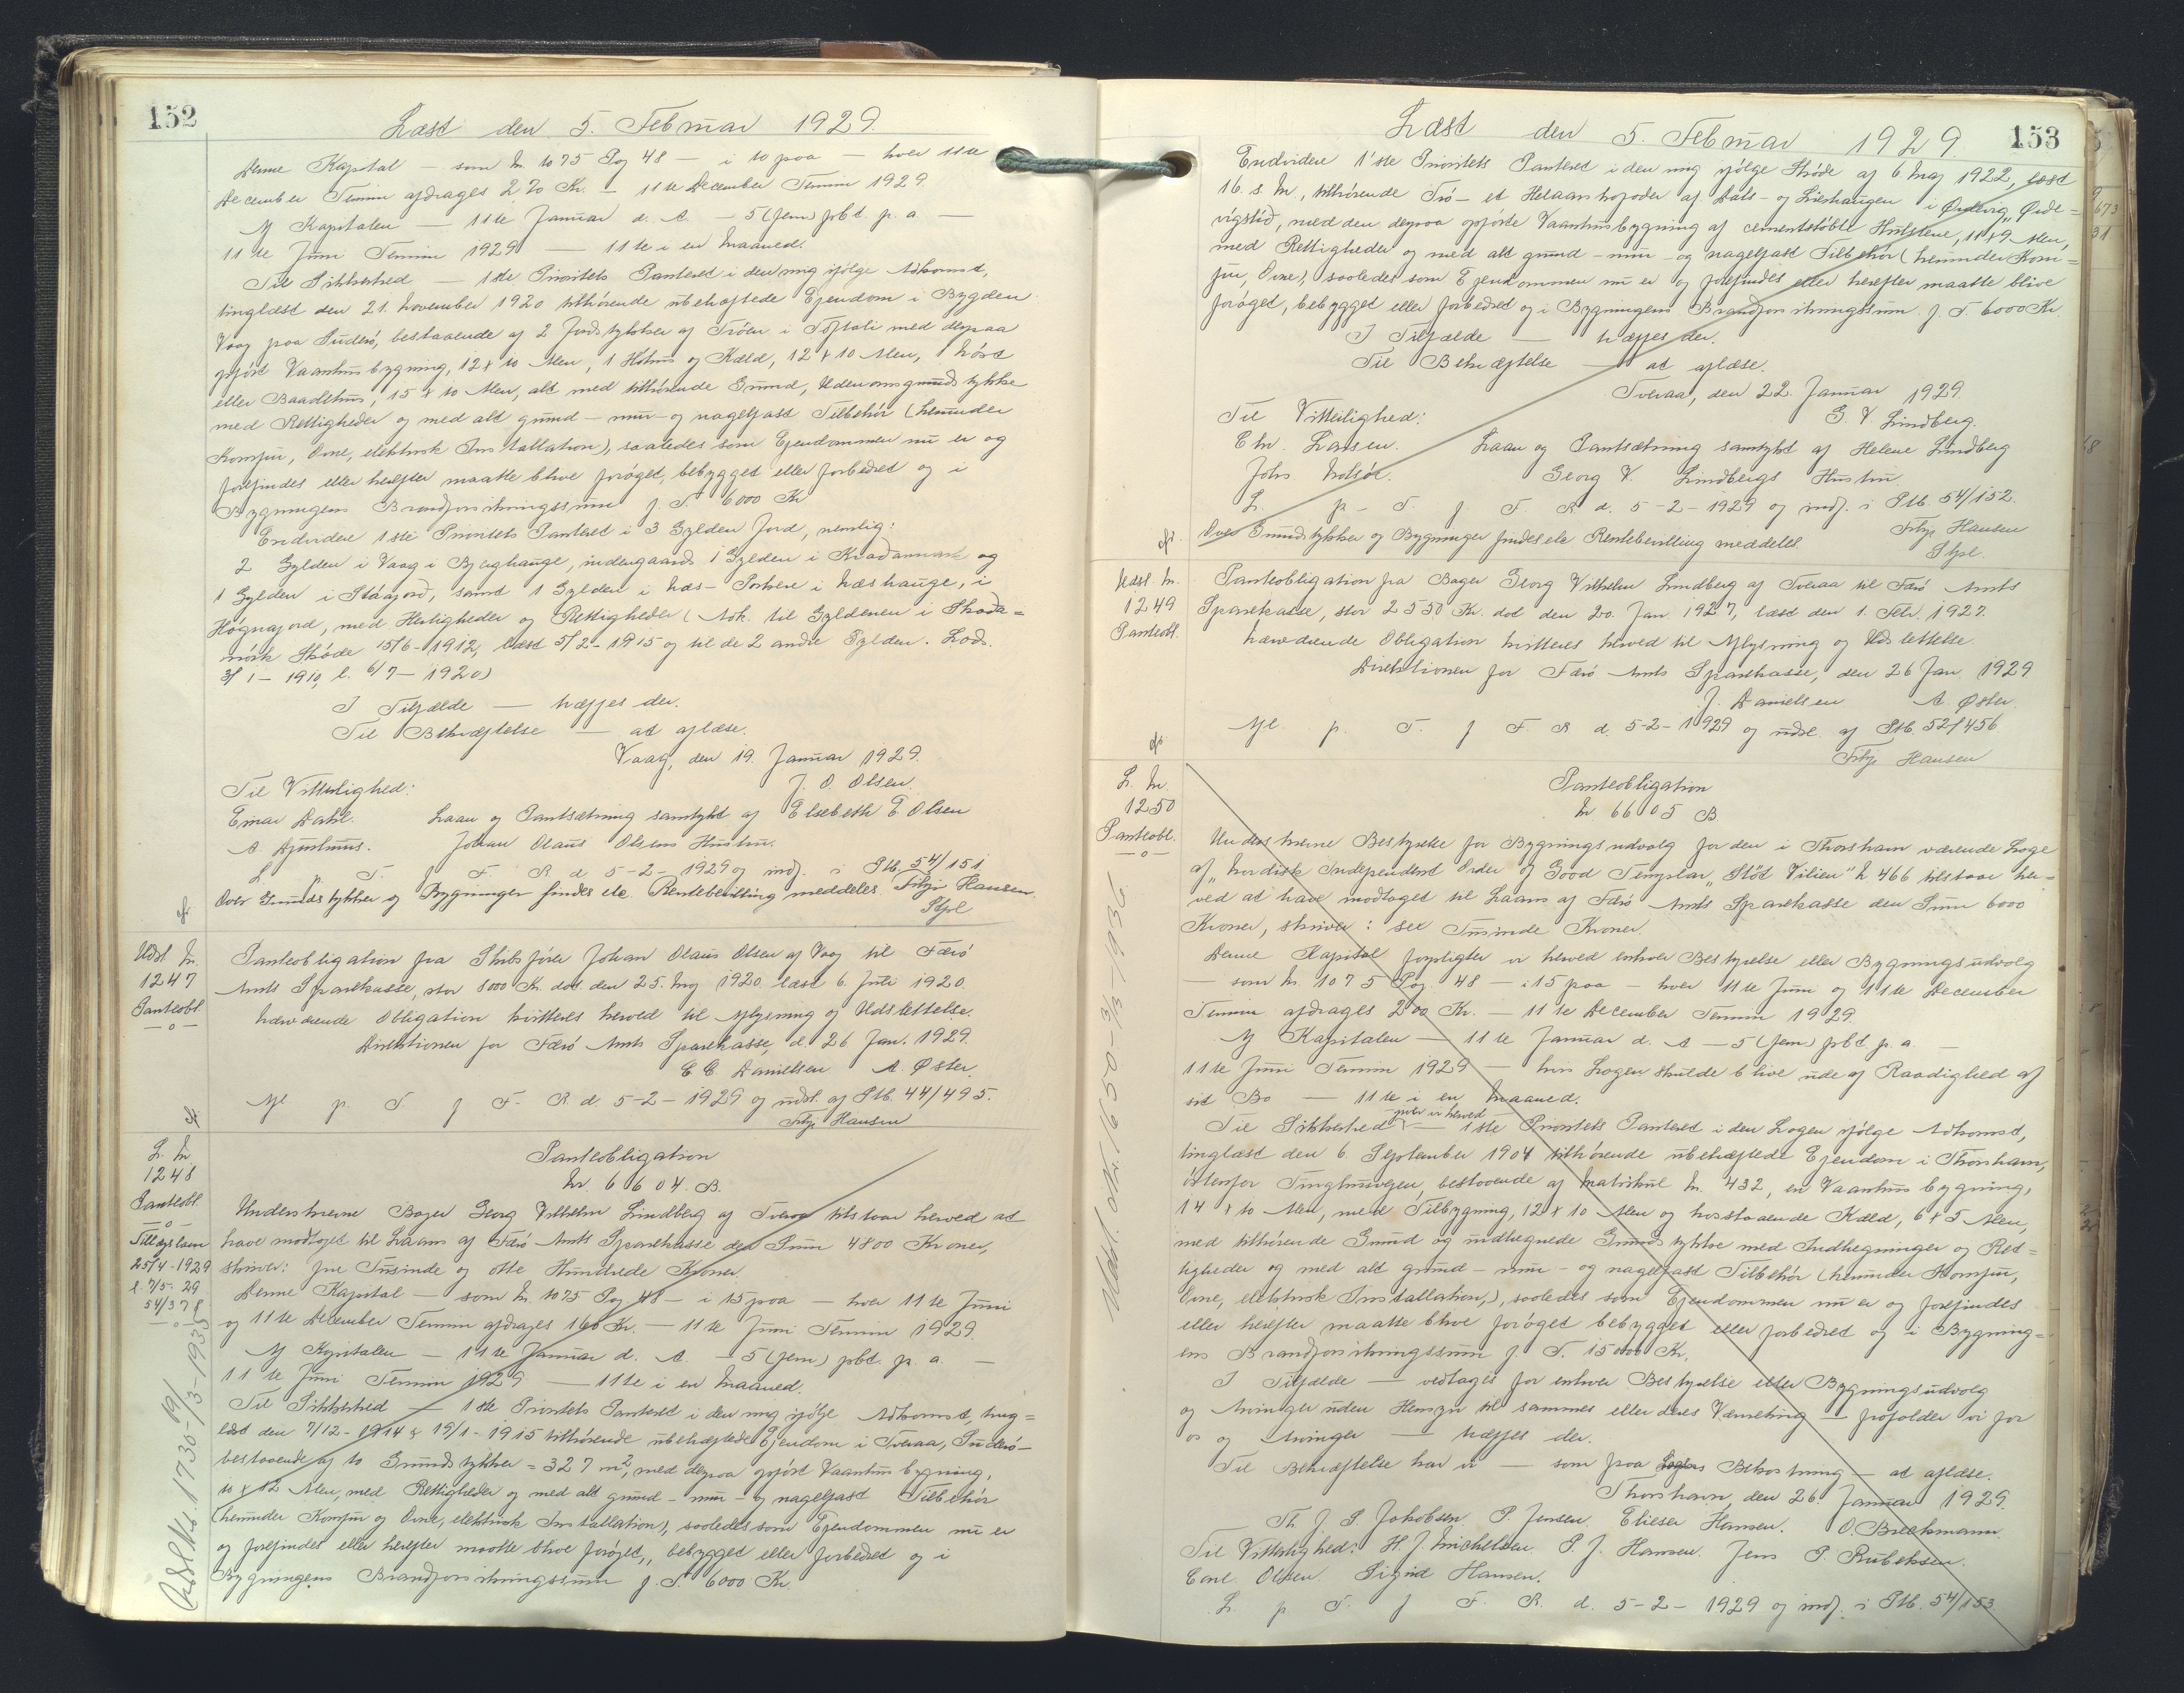 152
Læst den 5. Februar 1929.
Denne Kapital — som Nr. 1075 Pag 48 — i 10 paa — hver 11te
December Termin afdrages 270 Kr. — 11te December Termin 1929.
Af Kapitalen — 11te Januar d. A. — 5 (fem) pbt. p. a. —
11te Juni Termin 1929 — 11te i en Maaned.
Til Sikkerhed — 1ste Prioritets Panteret i den mig ifølge Adkomst,
tinglæst den 21. November 1920 tilhørende ubehæftede Ejendom i Bygden
Vaag paa Suderø, bestaaende af 2 Jordstykker af Trøen i Toftali med derpaa
opført Vaanhusbygning, 12 x 10 Alen, 1 Hohus og Kæld, 12 x 10 Alen, 1 Nøst
eller Baadehus, 15 x 10 Alen, alt med tilhørende Grund, Udenomsgrundstykke
med Rettigheder og med alt grund- mur- og nagelfast Tilbehør (herunder
Komfur, Ovne, elektrisk Installation), saaledes som Ejendommen nu er og
forefindes eller herefter maatte blive forøget, bebygget eller forbedret og i
Bygningens Brandforsikringssum f. T. 6000 Kr
Endvidere 1ste Prioritets Panteret i 3 Gylden Jord, nemlig:
2 Gylden i Vaag i Bjerghauge, indengaards 1 Gylden i og
1 Gylden i Stáajord, samt 1 Gylden i Næs- i Næshauge, i
Høgnajord, med Herligheder og Rettigheder (Adk. til Gyldenen i Skoda=
mørk Skøde 15/6-1912, læst 5/2-1915 og til de 2 andre Gylden. Lods.
3/1-1910, l. 6/7-1920)
I Tilfælde — træffes der.
Til Bekræftelse — at aflæse.
Vaag, den 19. Januar 1929.
Til Vitterlighed: J. O. Olsen.
Einar Dahl. Laan og Pantsætning samtykt af Elsebeth E Olsen
A. Djurhuus. Johan Olaus Olsens Hustru.
L. p. T. f F. R d 5-2-1929 og indf. i Ptb. 54/151
Over Grundstykker og Bygninger findes ele. Rentebevilling meddeles. Filip Hansen
Stpl
Udsl. Nr.
1247
Panteobl.
—o—
Panteobligation fra Skibsfører Johan Olaus Olsen af Vaag til Færø
Amts Sparekasse, stor 8000 Kr. dat. den 25. Maj 1920. læst 6. Juli 1920.
Nærværende Obligation kvitteres herved til Aflysning og Udslettelse.
Direktionen for Færø Amts Sparekasse, d. 26 Jan. 1929.
C. C. Danielsen. A. Øster.
Afl. p. T. f F. R. d. 5-2-1929 og udsl. af Ptb. 44/495.
Filip Hansen
L. Nr
1248
Panteobl.
—o—
Tillægslaan
25/4-1929
l. 7/5-29
54/378
—o—
Panteobligation
Nr. 6604. B.
Underskrevne Bager Georg Vilhelm Lindberg af Tveraa tilstaar herved at
have modtaget til Laans af Færø Amts Sparekasse den Sum 4800 Kroner,
skriver: fire Tusinde og otte Hundrede Kroner.
Denne Kapital — som Nr. 1075 Pag 48 — i 15 paa — hver 11te Juni
og 11te December Termin afdrages 160 Kr. — 11te Juni Termin 1929.
Af Kapitalen — 11te Januar d. A. — 5 (fem) pbt. p. a. —
11te Juni Termin 1929 — 11te i en Maaned.
Til Sikkerhed — 1ste Prioritets Panteret i den mig ifølge Adkomst, ting=
læst den 7/12-1914 & 19/1-1915 tilhørende ubehæftede Ejendom i Tveraa, Suderø-
bestaaende af to Grundstykker = 327 m², med derpaa opført Vaanhusbygning,
10 x 12 Alen, med Rettigheder og med alt grund- mur- og nagelfast Tilbehør
(herunder Komfur og Ovne, elektrisk Installation), saaledes som Ejendommen nu er
og forefindes eller herefter maatte blive forøget, bebygget eller forbedret og i
Bygningens Brandforsikringssum f. T. 6000 Kr.
153
Læst den 5. Februar 1929.
Endvidere 1'ste Prioritets Panteret i den mig ifølge Skøde af 6 Maj 1922, læst
16. s. M., tilhørende Trø- et Helaarshoføder af Aals- og Lishaugen i Ørdevig, Ørde=
vigstød, med den derpaa opførte Vaanhusbygning af cementstøbte Hulstene, 11 x 9 Alen,
med Rettigheder og med alt grund- mur- og nagelfast Tilbehør (herunder Kom=
fur, Ovne), saaledes som Ejendommen nu er og forefindes eller herefter maatte blive
forøget, bebygget eller forbedret og i Bygningens Brandforsikringssum f. T. 6000 Kr.
I Tilfælde — træffes der.
Til Bekræftelse — at aflæse.
Tveraa, den 22. Januar 1929.
Til Vitterlighed: G. V Lindberg.
Chr. Larsen. Laan og Pantsætning samtykt af Helene Lindberg
Johs Georg V. Lindbergs Hustru.
L. p. T. f T. R d. 5-2-1929 og indf. i Ptb 54/152.
Over Grundstykker og Bygninger findes ele Rentebevilling meddeles. Filip Hansen
Stpl.
Udsl. Nr.
1249
Panteobl.
Panteobligation fra Bager Georg Vilhelm Lindberg af Tveraa til Færø Amts
Sparekasse, stor 2550 Kr. dat den 20. Jan 1927, læst den 1. Febr. 1927.
Nærværende Obligation kvitteres herved til Aflysning og Udslettelse.
Direktionen for Færø Amts Sparekasse, den 26 Jan. 1929
J. Danielsen A. Øster.
Afl. p. T. f F. R d. 5-2-1929 og udsl. af Ptb. 52/456
Filip Hansen
L. Nr.
1250
Panteobl.
—o—
Panteobligation
Nr 6605 B
Underskrevne Bestyrelse for Bygningsudvalg for den i Thorshavn værende Loge
af "Nordisk Independent Order of Good Templar "Støt Vilien" Nr 466 tilstaar her=
ved at have modtaget til Laans af Færø Amts Sparekasse den Sum 6000
Kroner, skriver: sex Tusinde Kroner.
Denne Kapital forpligter vi herved enhver Bestyrelse eller Bygningsudvalg
— som Nr. 1075 Pag. 48 — i 15 paa — hver 11te Juni og 11te December
Termin afdrages 200 Kr. — 11te December Termin 1929.
Af Kapitalen — 11te Januar d. A — 5 (fem) pbt. p. a. —
11te Juni Termin 1929 — hvis Logen skulde blive ude af Raadighed af
sit Bo — 11te i en Maaned.
Til Sikkerhed giver vi herved — 1ste Prioritets Panteret i den Logen ifølge Adkomst,
tinglæst den 6. September 1904 tilhørende ubehæftede Ejendom i Thorshavn,
østenfor Tinghusvejen, bestaaende af Matrikul Nr. 432, en Vaanhusbygning,
14 x 10 Alen, med Tilbygning, 12 x 10 Alen og hosstaaende Kæld, 6 x 5 Alen,
med tilhørende Grund og indhegnede Grundstykke med Indhegninger og Ret=
tigheder og med alt grund- mur- og nagelfast Tilbehør (herunder Komfur,
Ovne, elektrisk Installation,), saaledes som Ejendommen nu er og forefindes
eller herefter maatte blive forøget bebygget eller forbedret og i Bygning=
ens Brandforsikringssum f. T. 15000 Kr.
I Tilfælde — vedtages for enhver Bestyrelse eller Bygningsudvalg
og Arvinger uden Hensyn til sammes eller deres Værneting — forfolder vi for
os og Arvinger — træffes der.
Til Bekræftelse har vi — som paa Logens Bekostning — at aflæse.
Thorshavn, den 26. Januar 1929.
Th. J. S. Jakobsen. P. Jensen. Elieser Hansen. O. Breckmann.
Til Vitterlighed: H. J. Michelsen. P. J. Hansen. Jens P. Rubeksen.
Carl Olsen. Sigrid Hansen.
L. p T. f F. R. d. 5-2-1929 og indf. i Ptb. 54/153